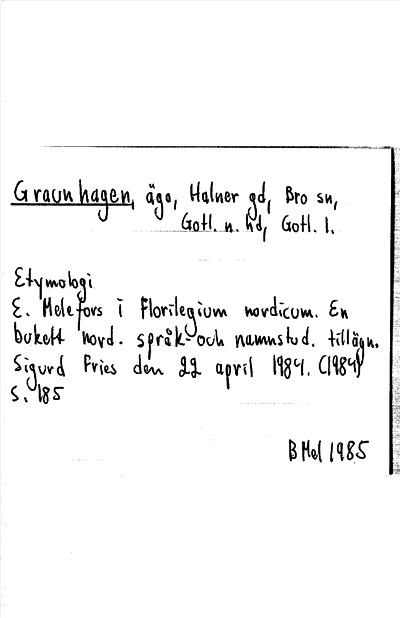 Graunhagen, ägo, Halner gd, Bro sn,
Gotl. n. hd, Gotl. l.
Etymologi
E. Melefors i Florilegium nordicum. En
bukett nord. språk- och namnstud. tillägn.
Sigurd Fries den 22 april 1984. (1984)
S. 185
B Mel 1985